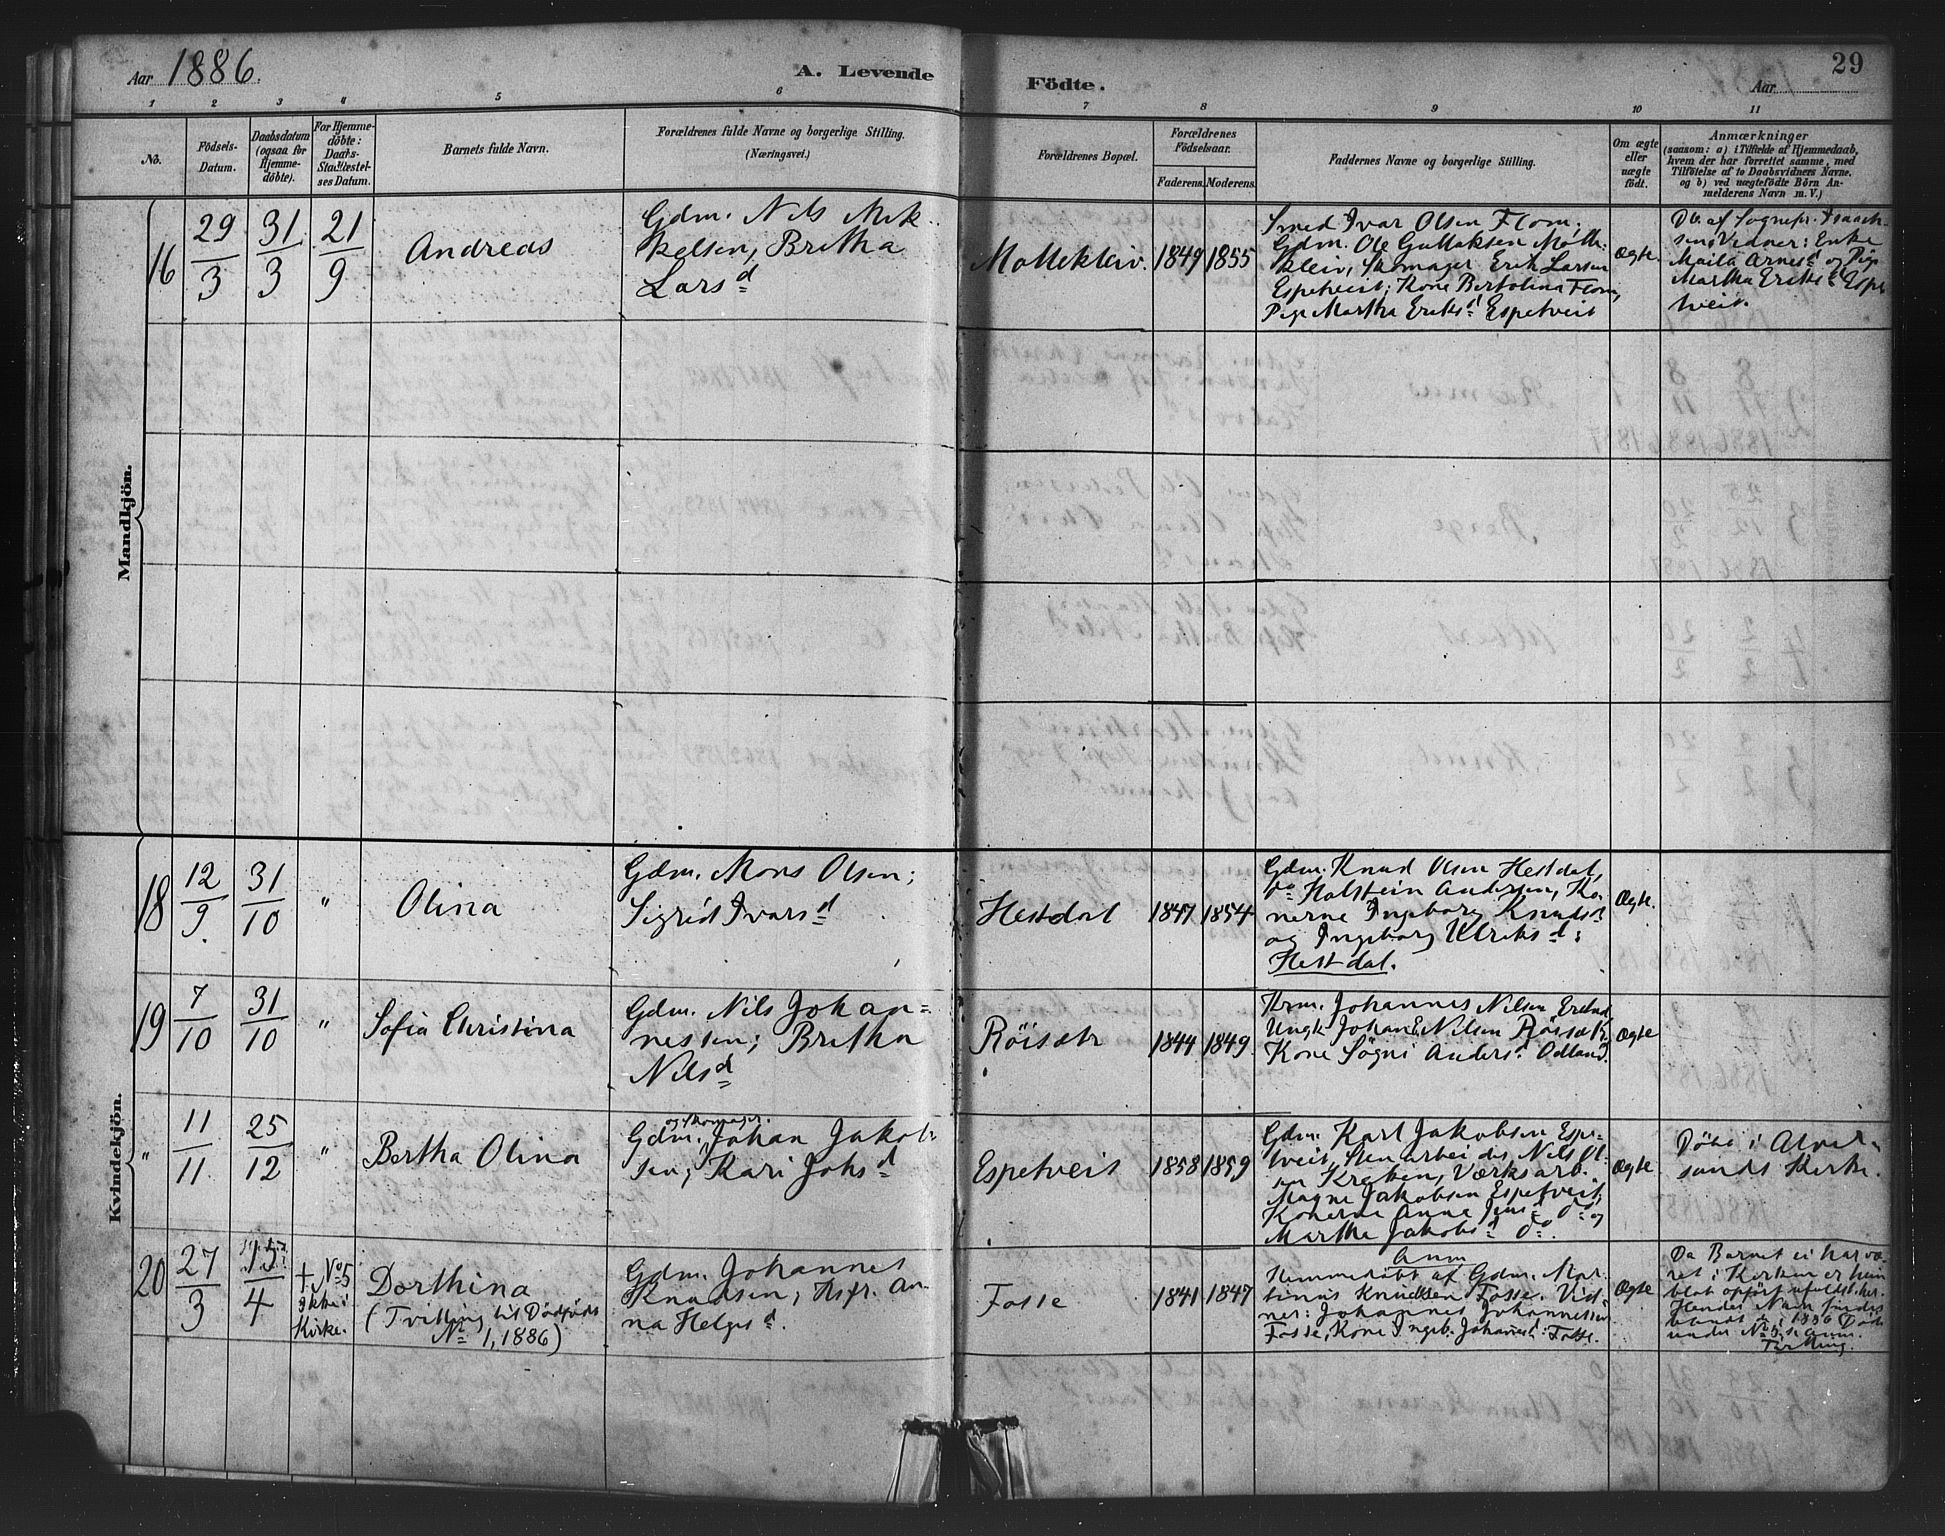 Aar 1886.
A. Levende
Födte.
29
Aar
1 2 3 4 5 6 7 8 9 10 11
No.
Födsels-
Datum.
Daabsdatum
(ogsaa for
Hjemme-
döbte).
For Hjemme-
döbte:
Daabs-
Stadfæstel-
ses Datum.
Barnets fulde Navn.
Forældrenes fulde Navne og borgerlige Stilling.
(Næringsvei.)
Forældrenes Bopæl.
Forældrenes
Födselsaar.
Faderens. Moderens.
Faddernes Navne og borgerlige Stilling.
Om ægte
eller
uægte
födt.
Anmærkninger
(saasom: a) i Tilfælde af Hjemmedaab,
hvem der har forrettet samme, med
Tilföielse af to Daabsvidners Navne,
og b) ved uægtefödte Börn An-
melderens Navn m. V.)
Mandkjön.
16
29/3
31/3
21/9
Andreas
Gdm. Nils Mik-
kelsen, Britha
Larsd
Mollekleiv.
1849 1855
Smed Ivar Olsen Flom;
Gdm. Ole Gullaksen Mölle-
kleiv, Skomager Erik Larsen
Espetveit; Kone Bertolina Flom,
Pige Martha Eriksd Espetveit
Ægte.
Db. af Sognepr. Isaach-
sen; Vidner: Enke
Maila Arnesd og Pige
Martha Eriksd Espe-
tveit.
Kvindekjön.
18
12/9.
31/10
"
Olina
Gdm. Mons Olsen;
Sigrid Ivarsd
Hestdal
1847 1854
Gdm. Knud Olsen Hestdal,
do Halstein Andersen, Ko-
nerne Ingeborg Knudsd
og Ingeborg Ulriksd:
Hestdal.
Ægte.
19
7/10
31/10
"
Sofia Christina
Gdm. Nils Johan=
nessen; Britha
Nilsd
Röisætr
1844 1849.
Johannes Nilsen
Ungk. Johan E. Nilsen Röisætr,
Kone Sögni Andersd Odland.
Ægte
"
11/11
25/12
"
Bertha Olina
og Skomager.
Gdm. Johan Jakob-
sen; Kari Johsd
Espetveit
1858 1859
Gdm. Karl Jakobsen Espe-
tveit, Stenarbeider Nils Ol-
sen Værksarb.
Magne Jakobsen Espetveit;
Konerne Anna Jensd do og
Martha Jakobsd do.
Ægte
Döbt i Alver-
sunds Kirke.
20
27/3
/4
+ No 5
Ikke i
Kirke.
Dorthina
(Tvilling til Dödföds
No 1, 1886)
Gdm. Johannes
Knudsen; Hsfr. An-
na Helgesd.
Fosse
1841 1847
Anm
Hjemmedöbt af Gdm. Mar-
tinus Knudsen Fosse. Vid-
ner: Johannes Johannessen
Fosse, Kone Ingeb. Johannesd: Fosse.
Ægte
Da Barnet ei har væ-
ret i Kirken er hun
blot opfört her.
Hendes Navn findes
blandt de i 1886 Döde
under No 5, se Anm.
Tvilling.